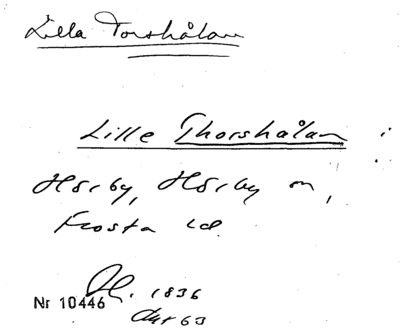 Lilla Torshålan
Lille Thorshålan i
Hörby, Hörby sn,
Frosta hd.
1836
Nr 10446
63